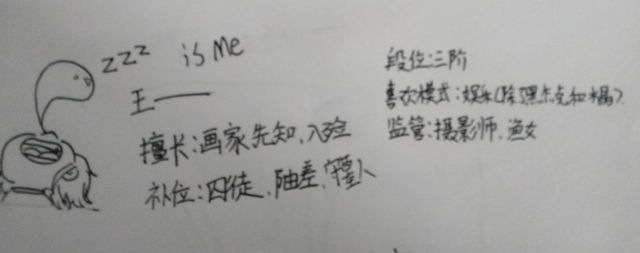 zzz is Me
王一
擅长:画家先知、入殓
补位:囚徒、陆差、守墓人
段位:三阶
喜欢模式:娱乐(除黑杰克和塔).
监管:摄影师、渔女